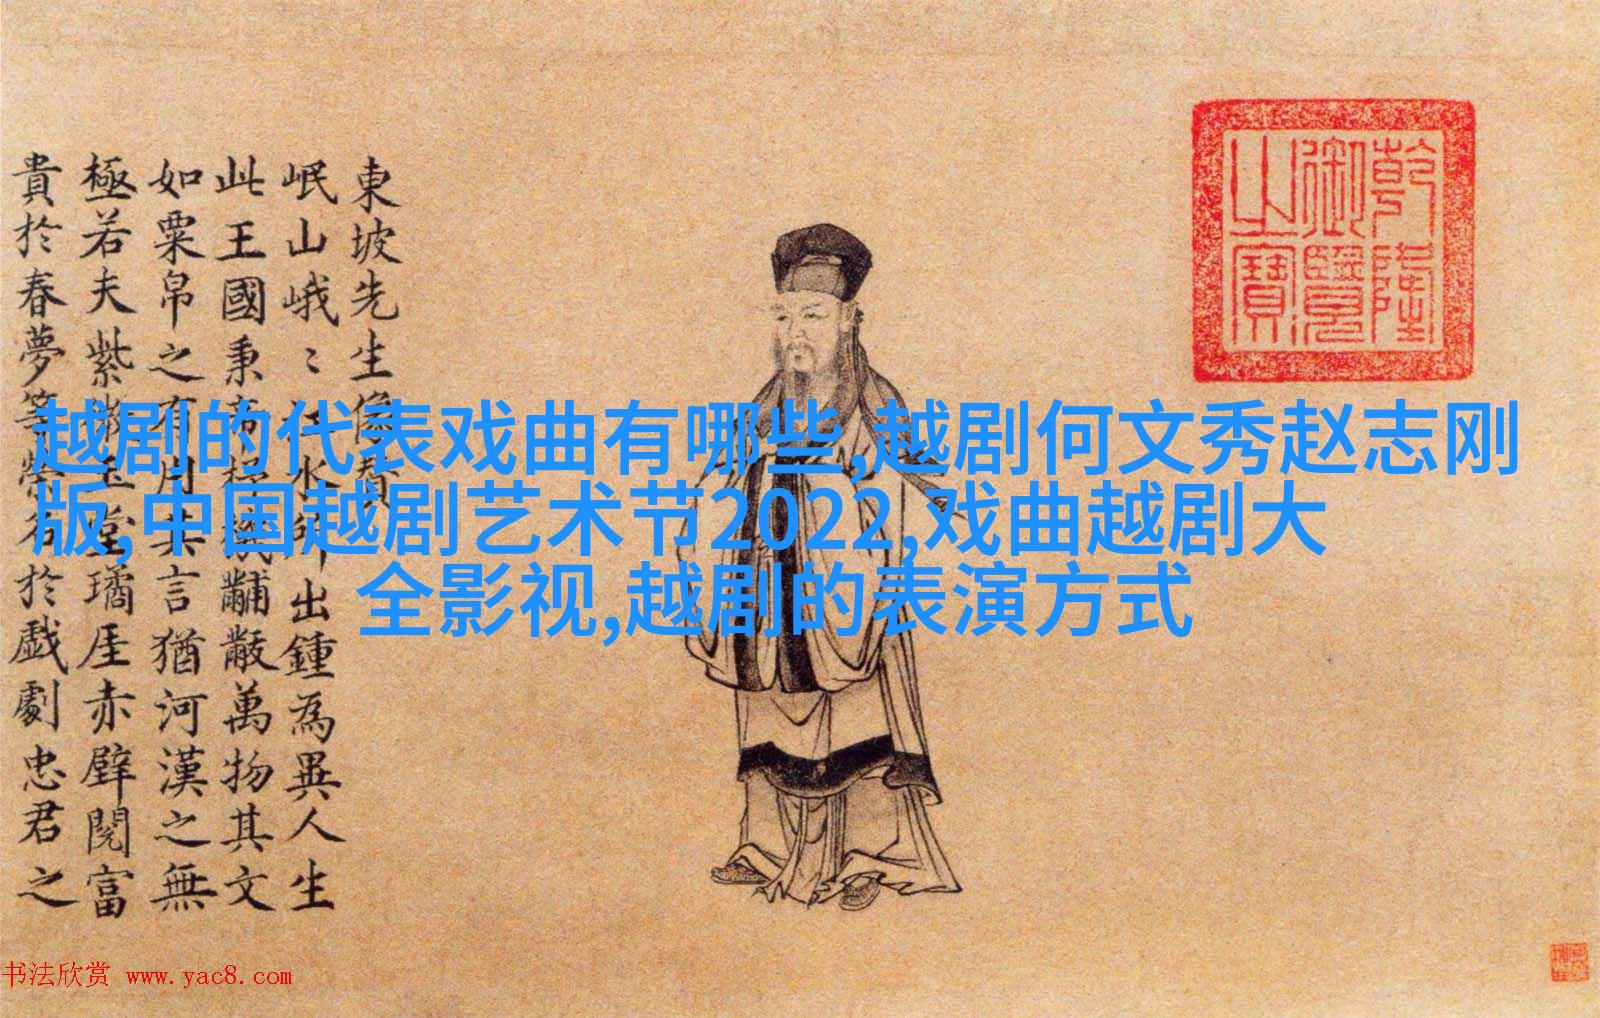 東坡先生像賛
岷山峨〻江水所出鍾為異人生
此王國秉帝機黼黻萬物其文
如粟帛之有用其言猶河漢之無
極若夫紫微玉堂璚厓赤壁閱富
貴於春夢等榮名於戲劇忠君之
乾隆御覽之寶
越剧的代表戏曲有哪些,越剧何文秀赵志刚
版,中国越剧艺术节2022,戏曲越剧大
全影视,越剧的表演方式
书法欣赏 www.yac8.com